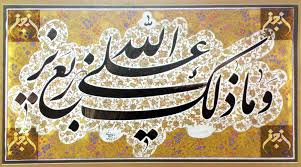 وما ذلك على الله بعزيز